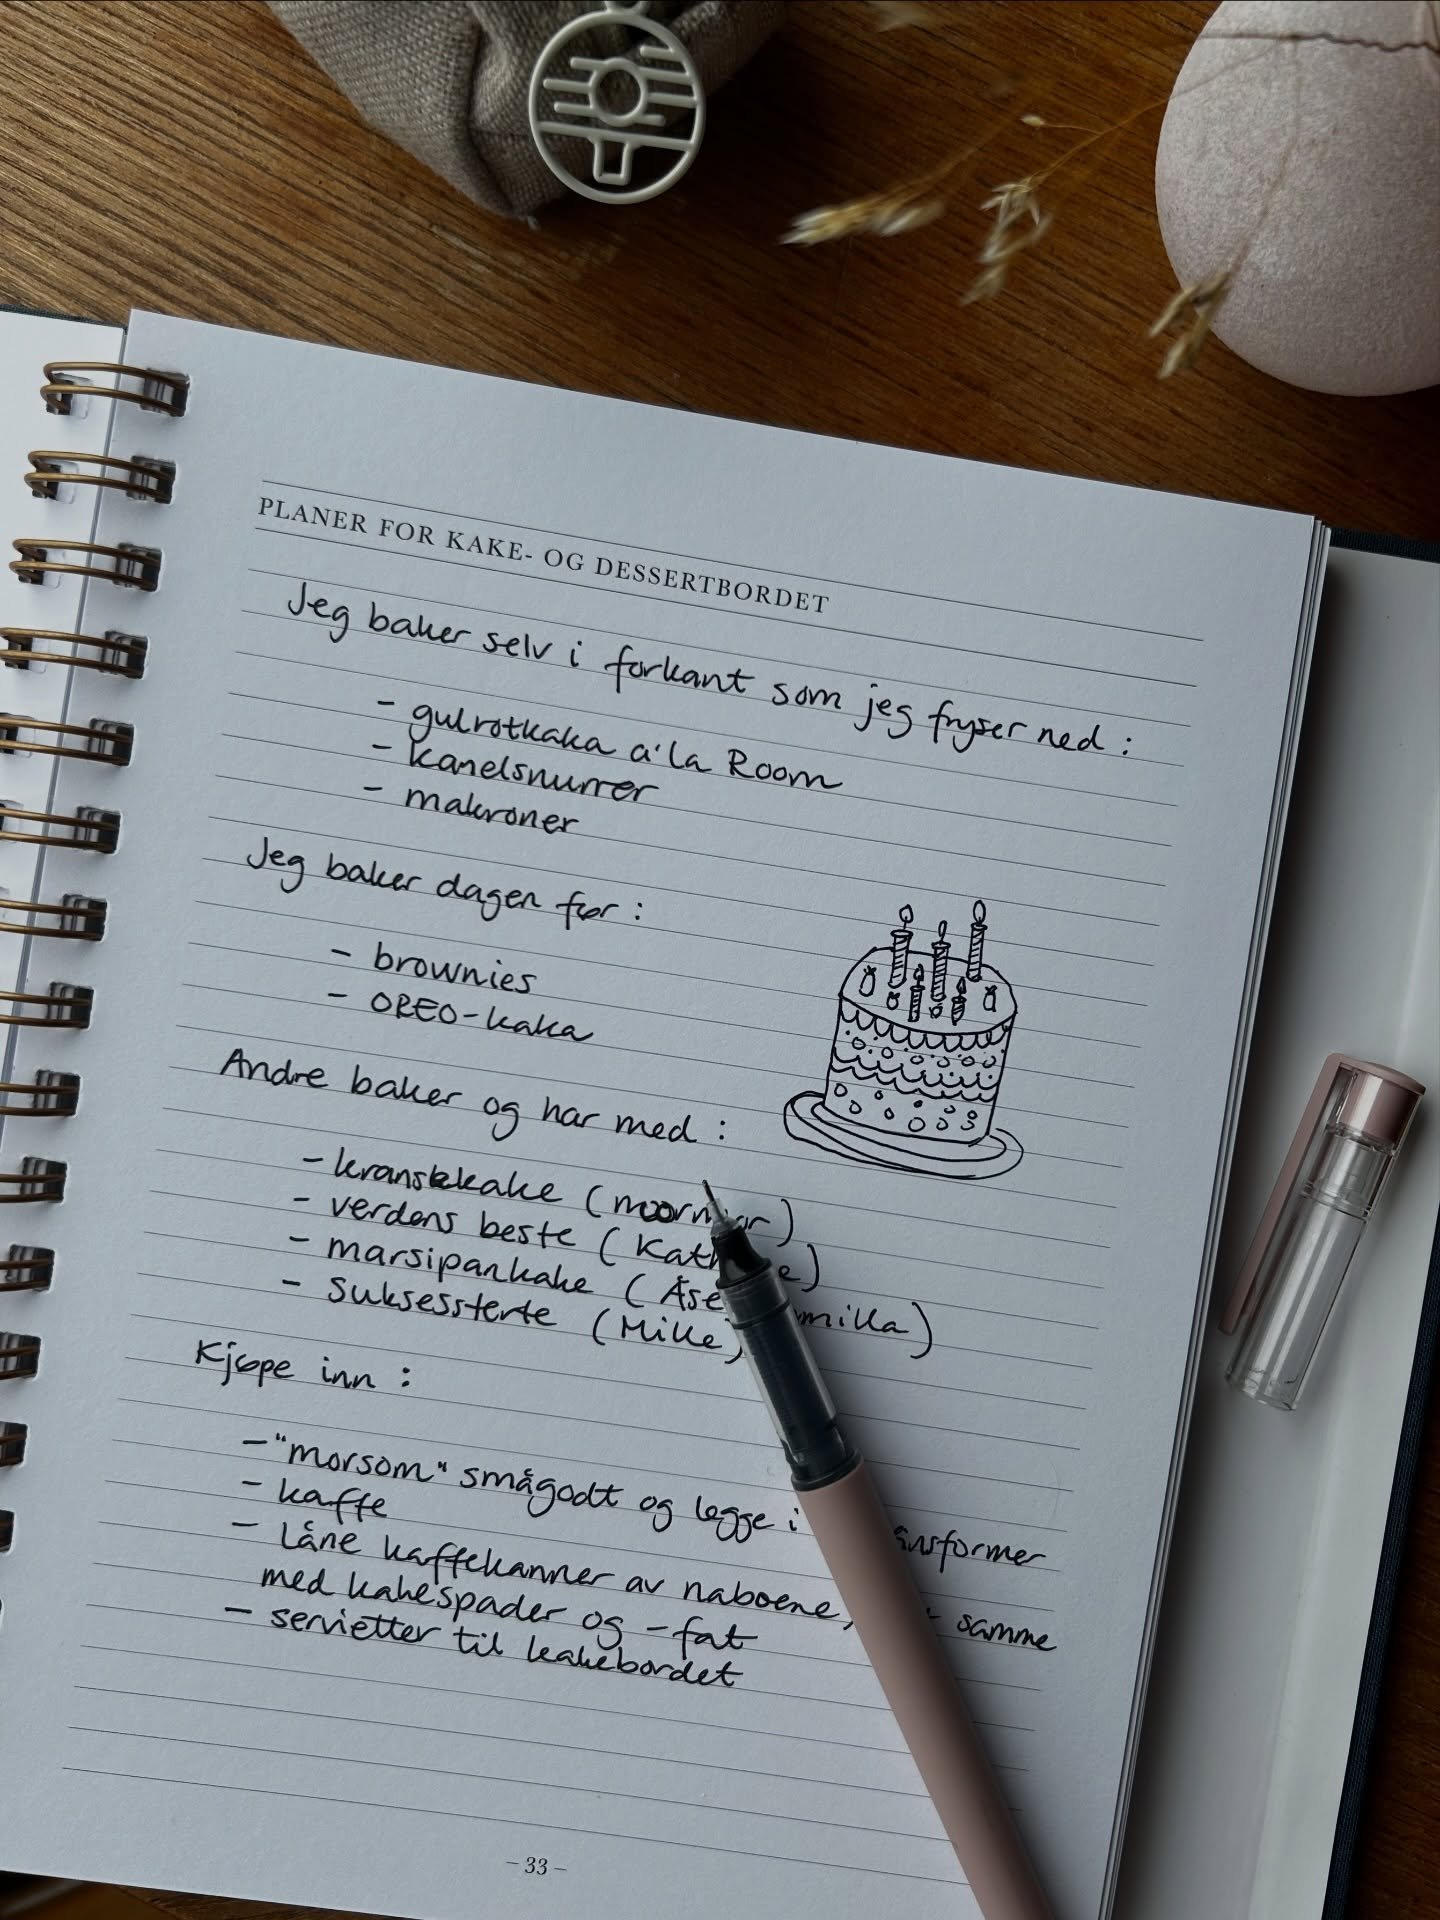 PLANER FOR KAKE- OG DESSERTBORDET
Jeg baker selv i forkant som jeg fryser ned :
- gulrotkaka a'la Room
- kanelsnurrer
- makroner
Jeg baker dagen før :
- brownies
- OREO-kaka
Andre baker og har med :
- kransekake (
- verdens beste (
- marsipankake (Åse
- Suksessterte (Mille)
Kjøpe inn :
- "morsom" smågodt og legge i
- kaffe
- låne kaffekanner av naboene, samme
med kakespader og -fat
- servietter til kakebordet
- 33 -